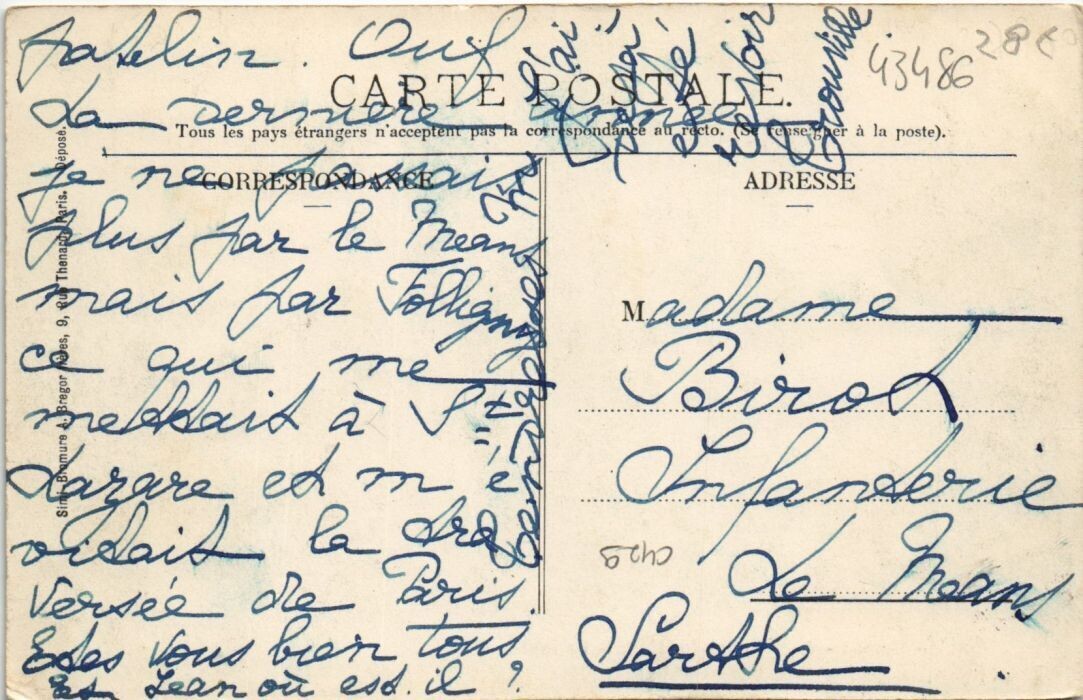 patelin. Ouf
CARTE POSTALE.
La dernière année
Tous les pays étrangers n'acceptent pas la correspondance au recto. (Se renseigner à la poste).
CORRESPONDANCE
je ne passais
plus par le Mans
mais par Folligny
ce qui me
mettait à St
Lazare et m'é
vitait la tra
versée de Paris.
Etes vous bien tous
Et Jean où est-il ?
tendresses
J'ai
été
revoir
Trouville
43486
28
ADRESSE
Madame
Birot
Infanterie
Le Mans
Sarthe
Simili-Bromure A. Bregor frères, 9, Rue Thenard, Paris. Déposé.